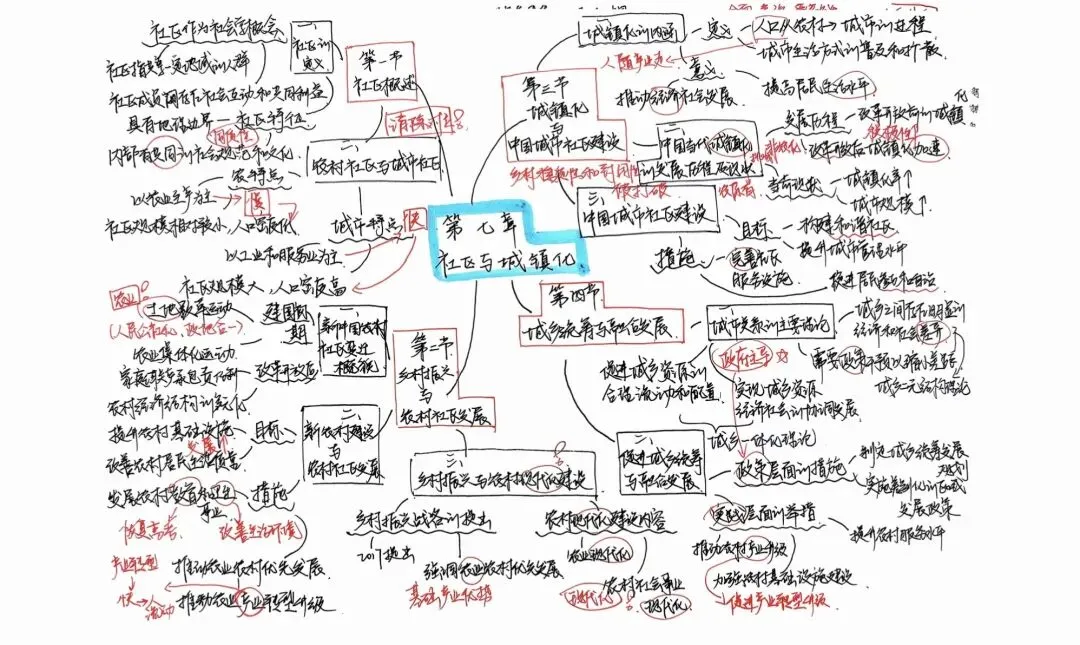 第七章
社区与城镇化
第一节
社区概述
请确对生!
一、
社区的定义
社区作为社会学概念
社区指在一定地域的人群
社区成员间存在社会互动和共同利益
具有地理边界
社区特征
同质性
内部有共同的社会规范和文化
二、
农村社区与城市社区
农村特点
以农业生产为主
慢
社区规模相对较小,人口密度低
城市特点
快
以工业和服务业为主
社区规模大,人口密度高
第二节
乡村振兴
与
农村社区发展
一、
新中国农村
社区变迁
概说
建国初期
土地改革运动
农业!
农业集体化运动
改革开放后
家庭联产承包责任制
农村经济结构的变化
二、
新农村建设
与
农村社区发展
目标
提升农村基础设施
改善农村居民生活质量
措施
发展农村教育和卫生
事业
恢复高考
改善生活环境
推动农业农村优先发展
产业转型
快→人
流动
推动农业产业转型升级
三、
乡村振兴与农村现代化建设
乡村振兴战略的提出
2017提出
强调农业农村优先发展
基础产业优势
农村现代化建设内容
农业现代化
农村社会事业
现代化
现代化
第三节
城镇化
与
中国城市社区建设
一、
城镇化的内涵
定义
人口从农村→城市的过程
城市生活方式的普及和扩散
人随产业走
意义
推动经济社会发展
提高居民生活水平
二、
中国当代城镇化
的发展历程及现状
发展历程
改革开放后城镇化加速
当前现状
城镇化率↑
城市规模↑
三、
中国城市社区建设
目标
构建和谐社区
提升城市管理水平
措施
完善社区
服务设施
促进居民参与和自治
第四节
城乡统筹与融合发展
一、
城乡关系的主要理论
城乡之间存在明显的
经济和社会差异
城乡二元结构理论
政府主导
需要政策干预以缩小差距
促进城乡资源的
合理流动和配置
实现城乡资源
经济社会的协同发展
城乡一体化理论
二、
促进城乡统筹
与融合发展
政策层面的措施
制定城乡统筹发展
规划
实施差别化的区域
发展政策
实践层面的举措
提升农村服务水平
推动农村产业升级
加强农村基础设施建设
促进产业转型升级